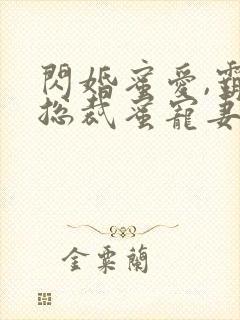 閃婚蜜愛,霸
總裁蜜寵妻
金粟蘭